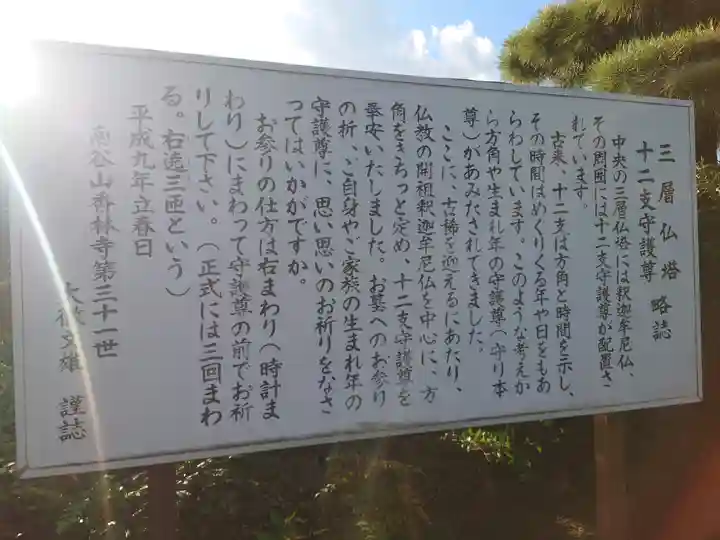 三層仏塔 略誌
十二支守護尊
中央の三層仏塔には釈迦牟尼仏、
その周囲には十二支守護尊が配置さ
れています。
古来、十二支は方角と時間を示し、
その時間はめくりくる年や日をもあ
らわしています。このような考えか
ら方角や生まれ年の守護尊(守り本
尊)があみだされてきました。
ここに、古稀を迎えるにあたり、
仏教の開祖釈迦牟尼仏を中心に、方
角をきちっと定め、十二支守護尊を
奉安いたしました。お墓へのお参り
の折、ご自身やご家族の生まれ年の
守護尊に、思い思いのお祈りをなさ
ってはいかがですか。
お参りの仕方は右まわり(時計ま
わり)にまわって守護尊の前でお祈
りして下さい。(正式には三回まわ
る。右遶三匝という)
平成九年立春日
南谷山香林寺第三十一世
文雄 謹誌